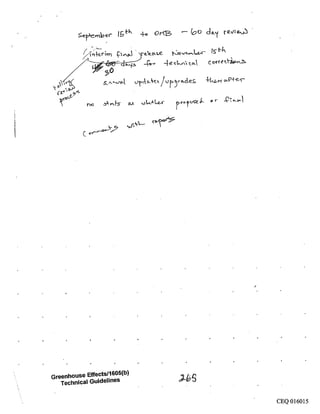 September 15th to OMB – 60 day review
interim final release November 15th
30 days for technical corrections
rolling review process
annual updates/upgrades thereafter
no stmts as whether proposed or final
Comments with reports
Greenhouse Effects/1605(b)
Technical Guidelines
265
CEQ 016015